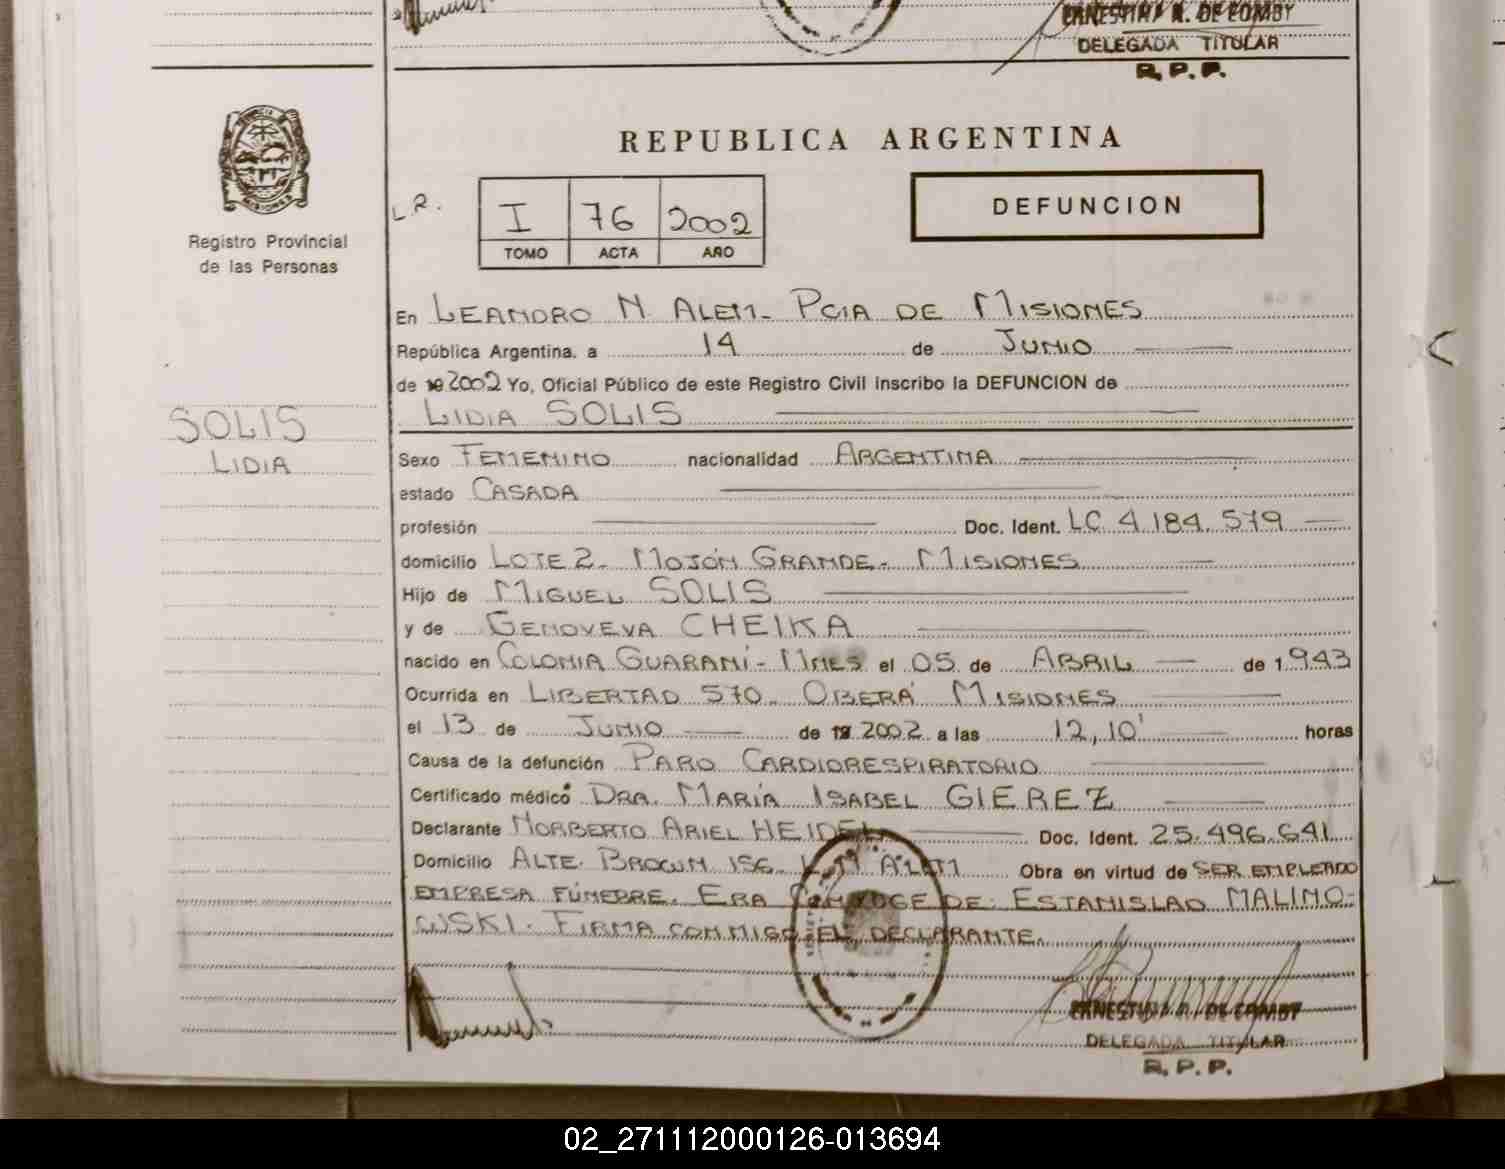 ERNESTINA R. DE COMBY
DELEGADA TITULAR
R. P. P.
MISIONES
Registro Provincial
de las Personas
REPUBLICA ARGENTINA
L.R.
I 76 2002
TOMO ACTA AÑO
DEFUNCION
En LEANDRO N. ALEM - PCIA DE MISIONES
República Argentina, a 14 de JUNIO
de 19 2002 Yo, Oficial Público de este Registro Civil inscribo la DEFUNCION de
LIDIA SOLIS
SOLIS
LIDIA
Sexo FEMENINO nacionalidad ARGENTINA
estado CASADA
profesión Doc. Ident. LC 4.184.579
domicilio LOTE 2 - MOJÓN GRANDE - MISIONES
Hijo de MIGUEL SOLIS
y de GENOVEVA CHEIKA
nacido en COLONIA GUARANÍ - MNES el 05 de ABRIL de 1943
Ocurrida en LIBERTAD 570 - OBERÁ MISIONES
el 13 de JUNIO de 19 2002 a las 12,10' horas
Causa de la defunción PARO CARDIORESPIRATORIO
Certificado médico DRA. MARÍA ISABEL GIEREZ
Declarante NORBERTO ARIEL HEIDEL Doc. Ident. 25.496.641
Domicilio ALTE. BROWN 156 - L. N. ALEM Obra en virtud de SER EMPLEADO
EMPRESA FÚNEBRE. ERA CONYUGE DE ESTANISLAO MALINO-
WSKI. FIRMA CONMIGO EL DECLARANTE.
ERNESTINA R. DE COMBY
DELEGADA TITULAR
R. P. P.
02_271112000126-013694